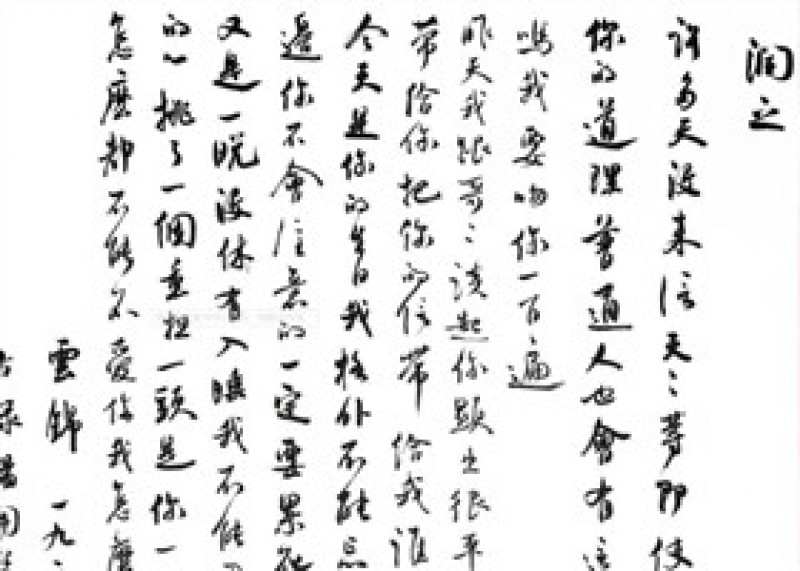 润之
許多天沒来信天〻夢即使
你的道理普通人也會有這
嗎我要吻你一百遍
昨天我跟哥〻談起你顯出很平
带给你把你的信带给我谁
今天是你的生日我格外不能忘
邊你不會注意的一定要累
又是一晚沒休有入睡我不能
的心挑了一個重担一頭是你一
怎麼都不能不愛你我怎麼
雲錦 一九